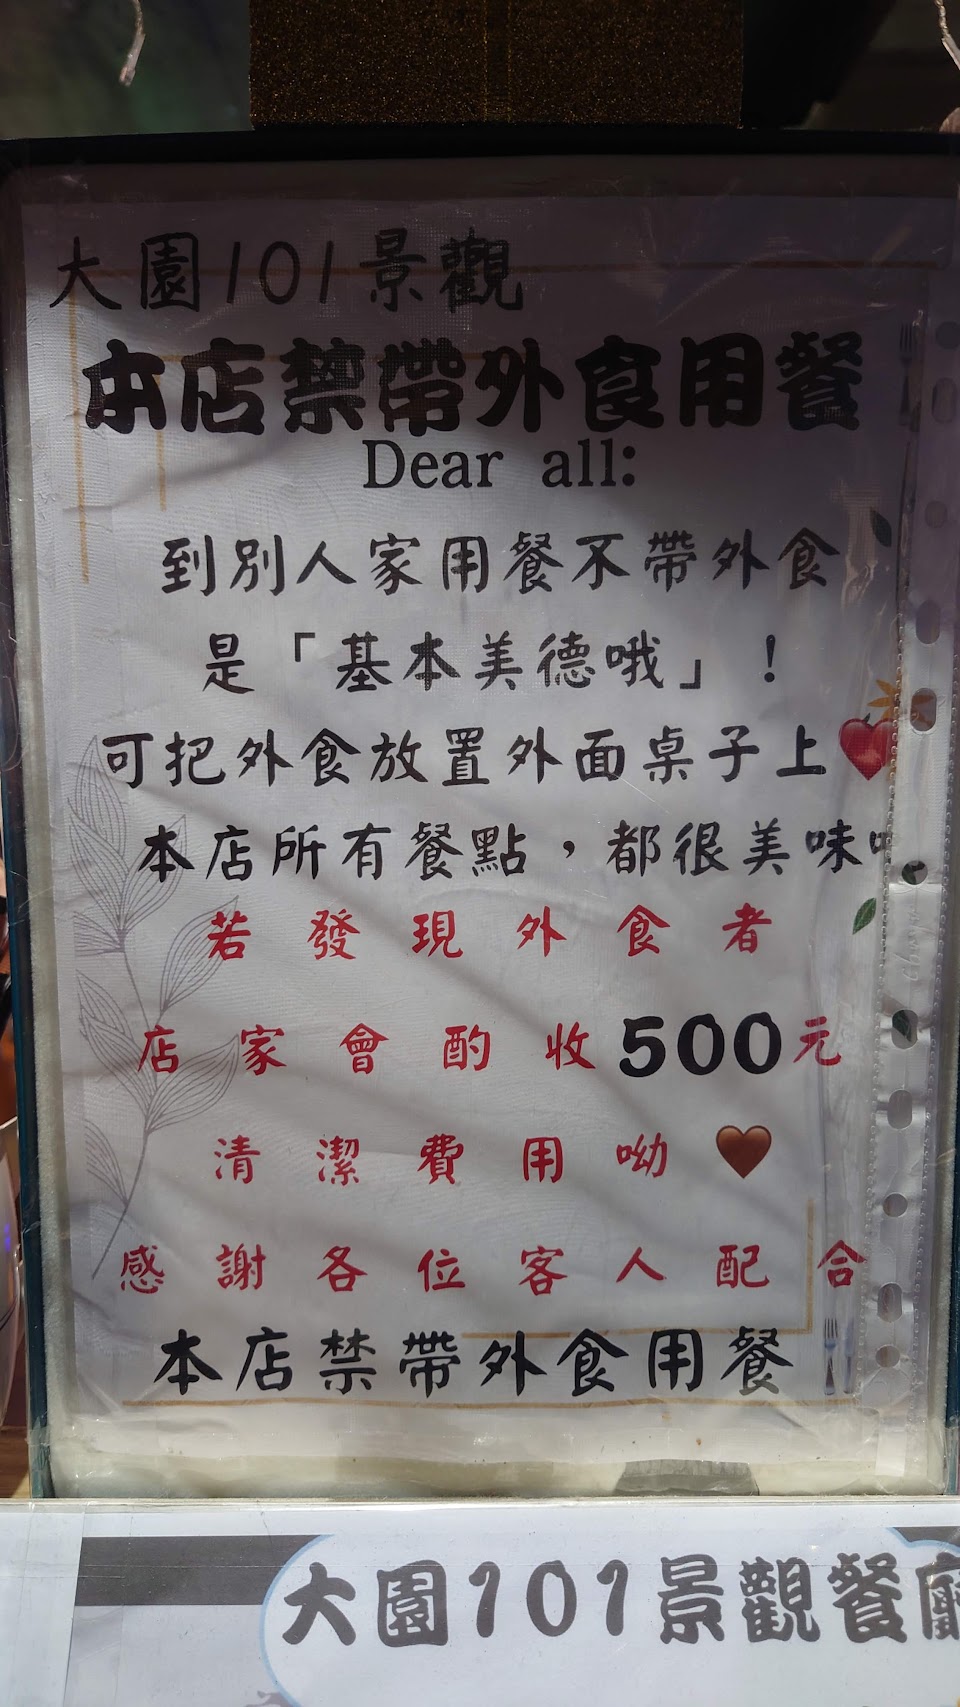 大園101景觀
本店禁帶外食用餐
Dear all:
到別人家用餐不帶外食
是「基本美德哦」！
可把外食放置外面桌子上❤️
本店所有餐點，都很美味
若發現外食者
店家會酌收500元
清潔費用呦🤎
感謝各位客人配合
本店禁帶外食用餐
大園101景觀餐廳